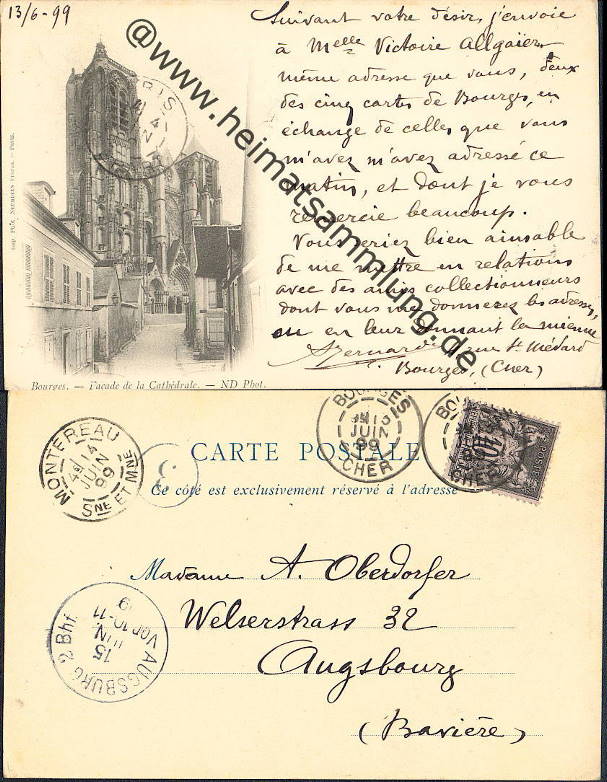 13/6-99
Suivant votre désir, j'envoie
à Melle Victoire Allgaier
même adresse que vous, deux
des cinq cartes de Bourges, en
échange de celles que vous
m'avez m'avez adressé ce
matin, et dont je vous
remercie beaucoup.
Vous seriez bien aimable
de me mettre en relations
avec des autres collectionneurs
dont vous me donnerez les adresses,
ou en leur donnant la mienne
Bernard rue St Médard
Bourges (Cher)
@www.heimatsammlung.de
PARIS
Bourges. — Façade de la Cathédrale. — ND Phot.
MONTEREAU
14
JUIN
99
SNE ET MNE
3
BOURGES
JUIN
99
CHER
CARTE POSTALE
Ce côté est exclusivement réservé à l'adresse
Madame A. Oberdorfer
Welserstrass 32
Augsbourg
(Bavière)
AUGSBURG 2 Bhf.
15
JUN
Vor 10-11